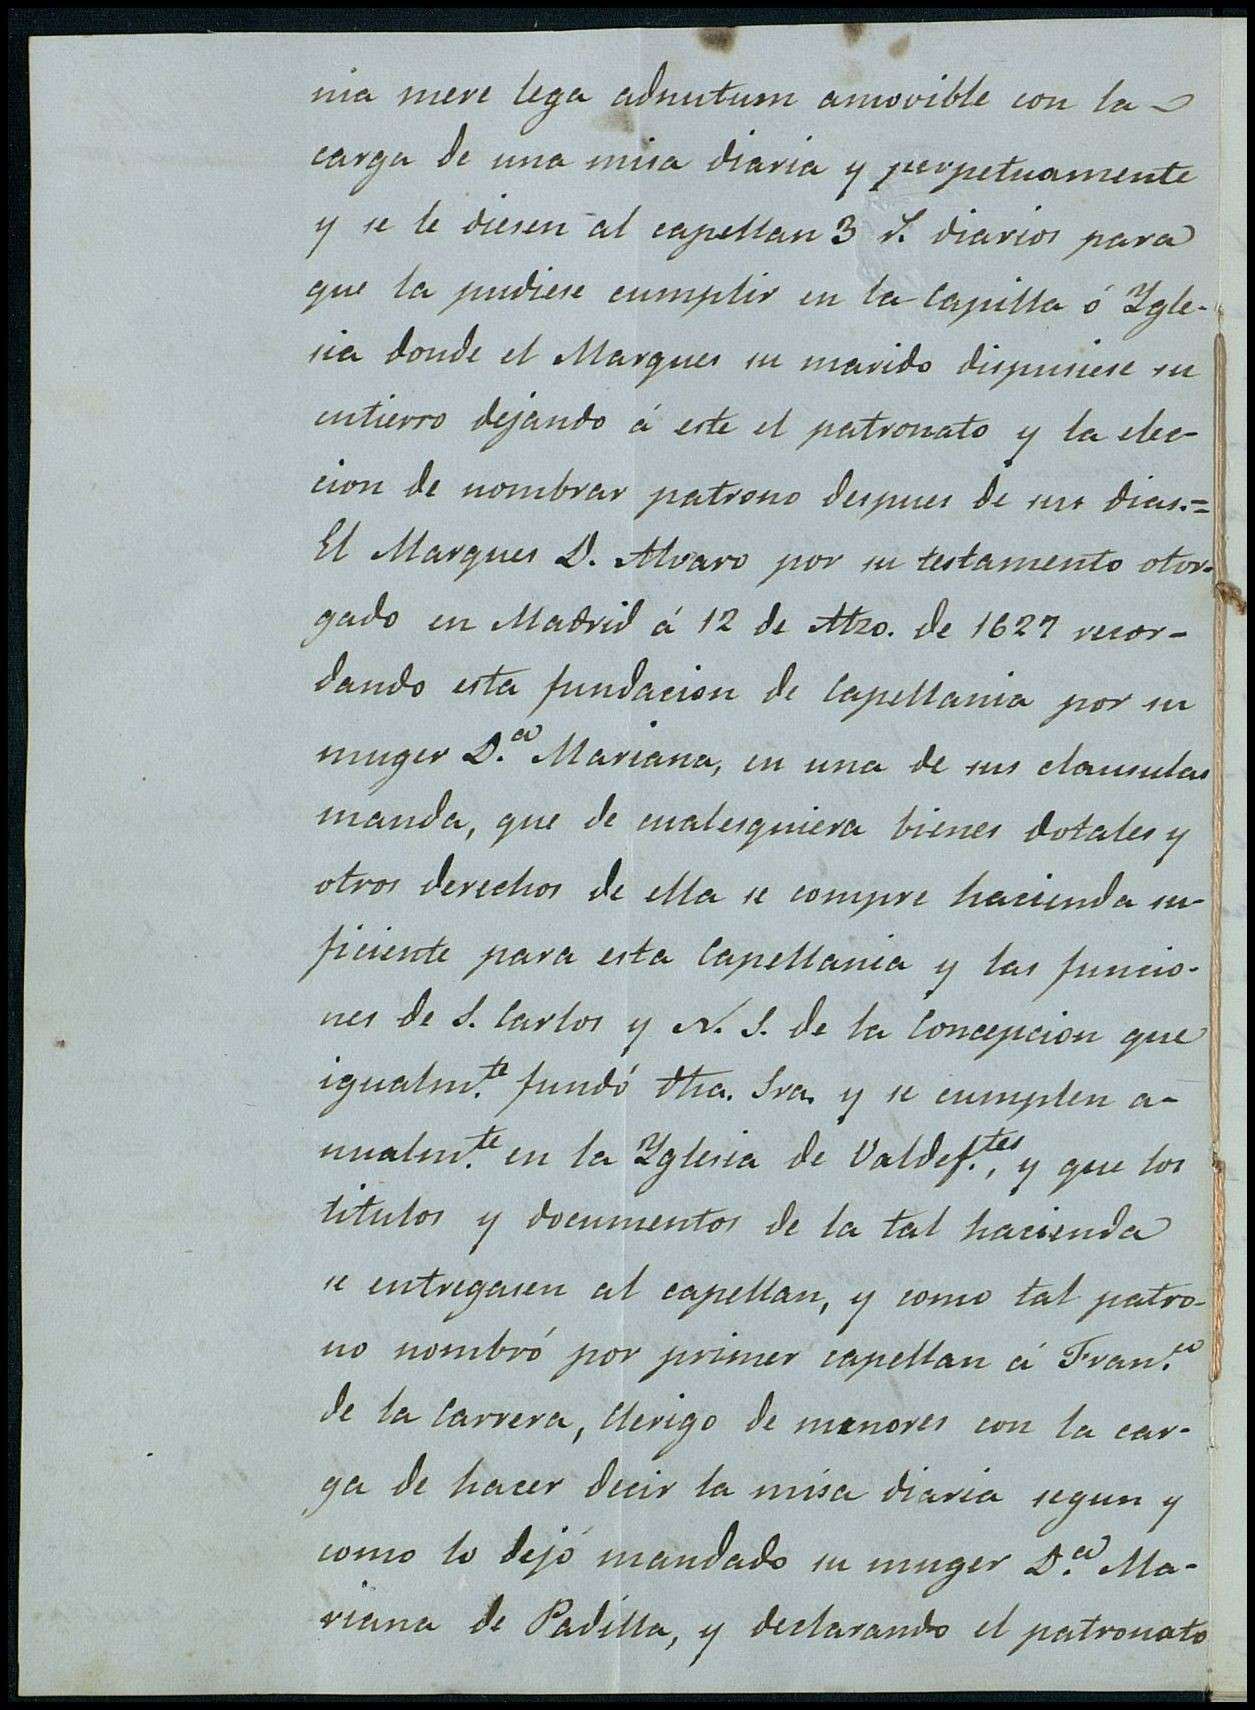 nia mere lega adnutum amovible con la
carga de una misa diaria y perpetuamente
y se le diesen al capellan 3 r. diarios para
que la pudiese cumplir en la Capilla ó Ygle-
sia donde el Marques su marido dispusiese su
entierro dejando á este el patronato y la elec-
cion de nombrar patrono despues de sus dias.=
El Marques D. Alvaro por su testamento otor-
gado en Madrid á 12 de Mzo. de 1627 recor-
dando esta fundacion de Capellania por su
muger D.ª Mariana, en una de sus clausulas
manda, que de cualesquiera bienes dotales y
otros derechos de ella se compre hacienda su-
ficiente para esta Capellania y las funcio-
nes de S. Carlos y N. S. de la Concepcion que
igualm.te fundó dha. Sra. y se cumplen a-
nualm.te en la Yglesia de Valdef.tes, y que los
titulos y documentos de la tal hacienda
se entregasen al capellan, y como tal patro-
no nombró por primer capellan á Fran.co
de la Carrera, Clerigo de menores con la car-
ga de hacer decir la misa diaria segun y
como lo dejó mandado su muger D.ª Ma-
riana de Padilla, y declarando el patronato